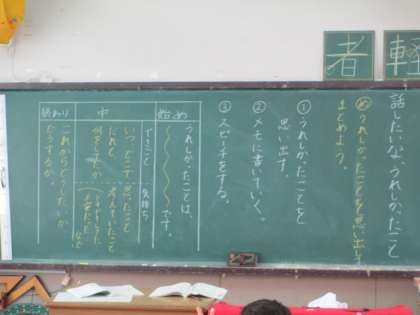 話したいな、うれしかったこと
め うれしかったことを思い出して
まとめよう。
① うれしかったことを
思い出す。
② メモに書いていく。
③ スピーチをする。
始め
うれしかったことは、
〜〜〜〜です。
中
できごと
気持ち
いつ、どこで
だれと、
何を
思ったこと
考えていたこと
など
終わり
これからどうしたいか
どうするか。
者
軽